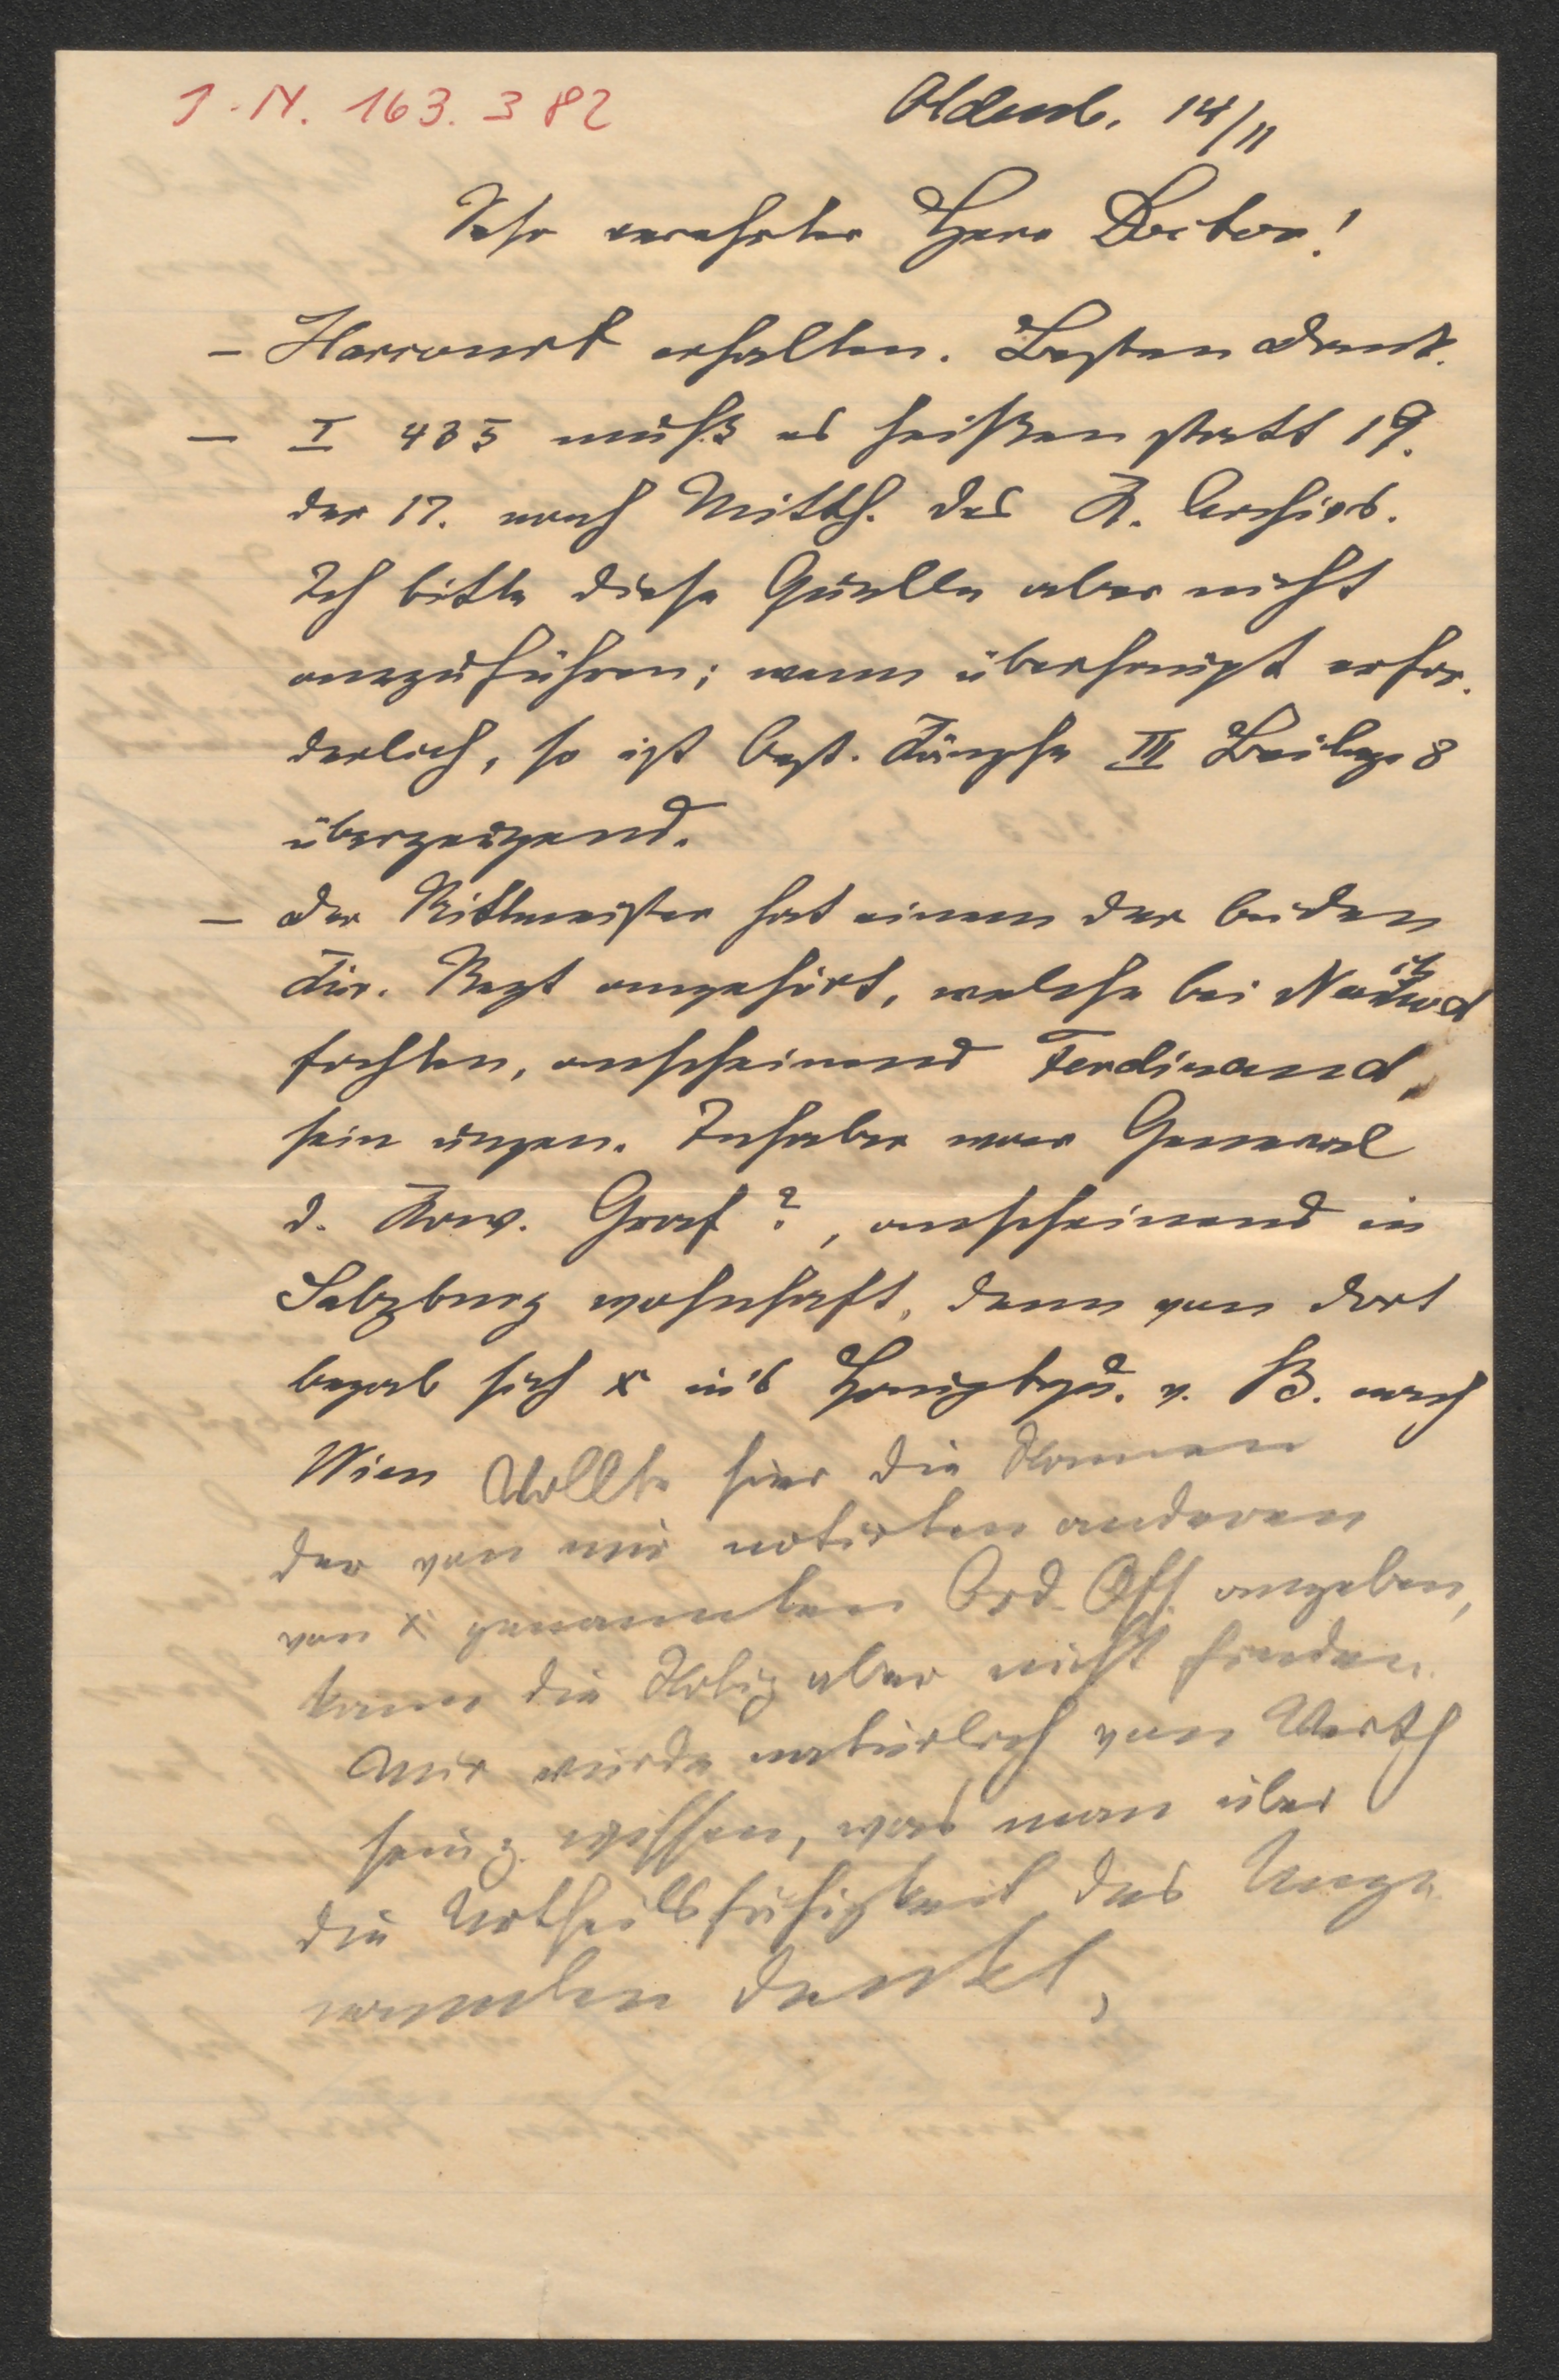 J. N. 163.382
Oldenb. 14/11
Sehr verehrter Herr Doctor!
– Harcourt erhalten. Besten Dank.
– I 435 muß es heißen statt 19.
der 17. nach Mitth. des K. Archivs.
Ich bitte diese Quelle aber nicht
anzuführen; wenn überhaupt erfor-
derlich, so ist Oest. Kämpfe III Beilage 8
überzeugend.
– Der Rittmeister hat einem der beiden
Kür. Regt angehört, welche bei Nachod
fochten, anscheinend Ferdinand,
sein ungen. Inhaber war General
d. Kav. Graf ?, anscheinend in
Salzburg wohnhaft, denn von dort
begab sich x in's v. B. nach
Wien Wollte hier die Namen
der von mir notirten anderen
von x genannten Ord. Off. angeben,
kann die Notiz aber nicht finden.
Mir würde natürlich von Werth
sein z. wissen, was man über
die Urtheilsfähigkeit des Unge
nannten denkt,